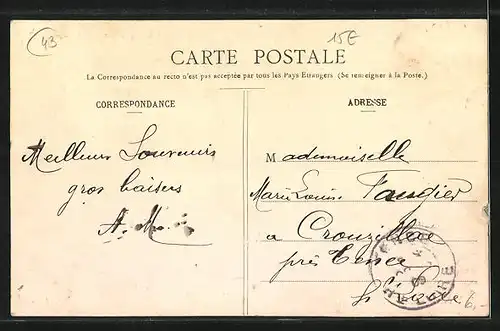 43
15E
CARTE POSTALE
La Correspondance au recto n'est pas acceptée par tous les Pays Etrangers (Se renseigner à la Poste.)
CORRESPONDANCE
ADRESSE
Meilleurs Souvenirs
gros baisers
A. M.
Mademoiselle
Marie Louise
a
près Tence
Hte Loire
6.-